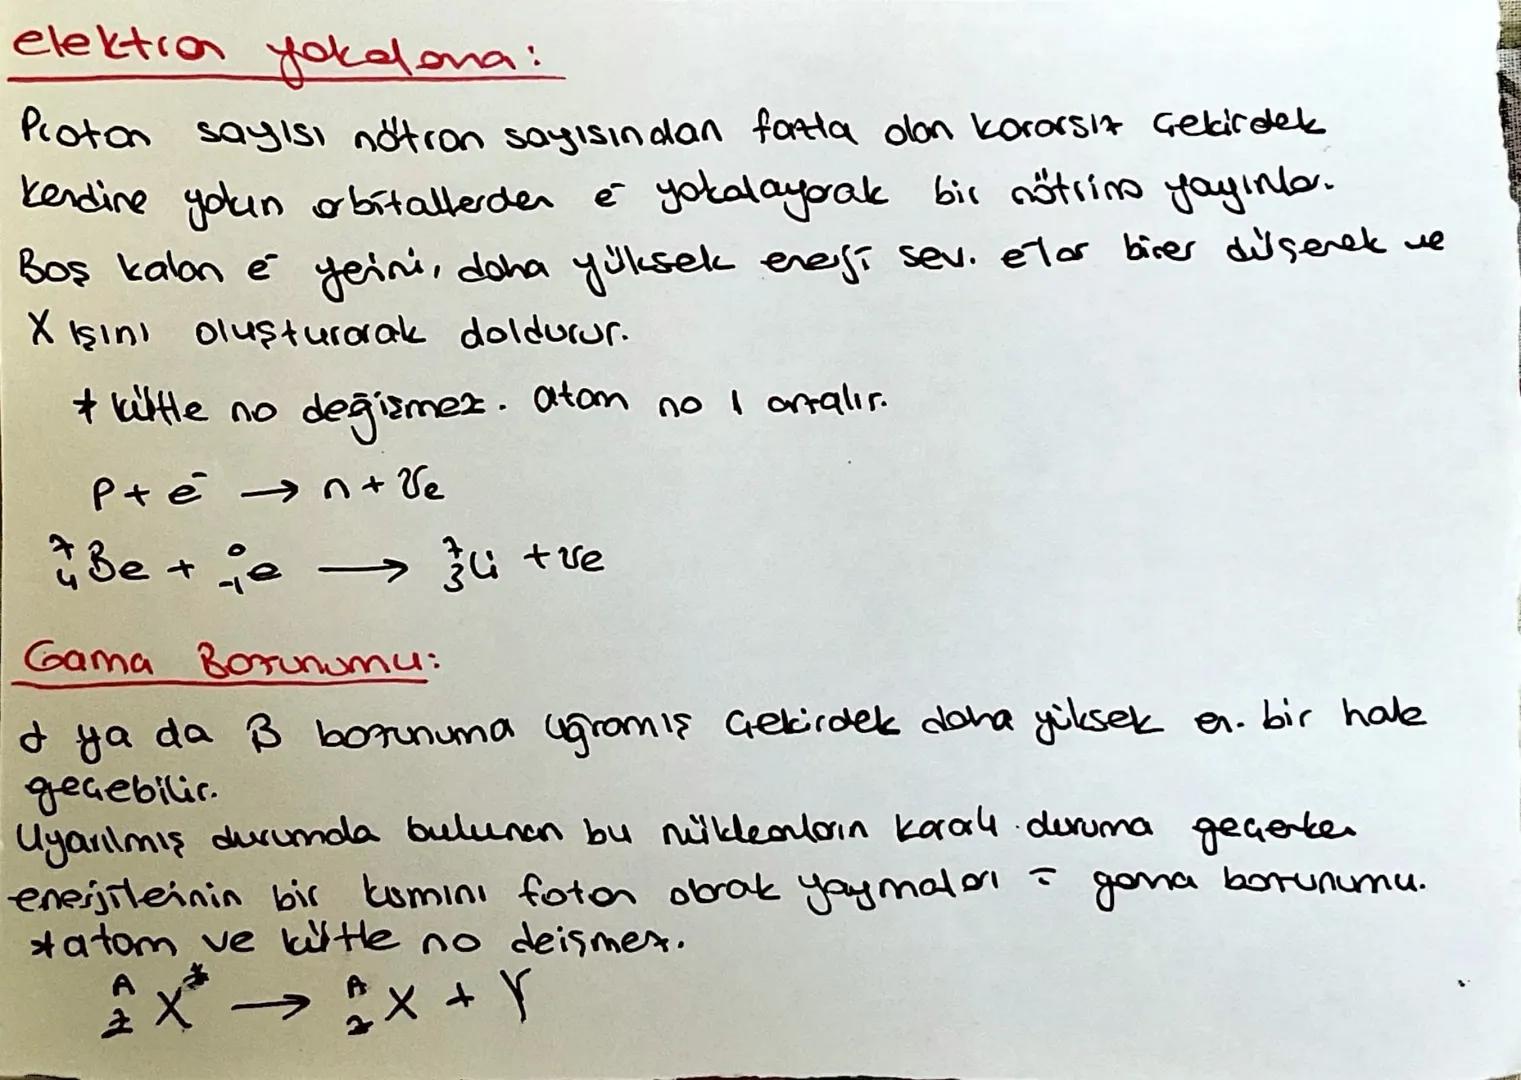 elektron yakalama:
Proton sayısı nötron sayısından fazla olan kararsız çekirdek
kendine yakın orbitallerden e⁻ yakalayarak bir nötrino yayınlar.
Boş kalan e⁻ yerini, daha yüksek enerji sev. e⁻lar birer düşerek ve
X ışını oluşturarak doldurur.
* kütle no değişmez. atom no 1 azalır.
p + e⁻ → n + νe
⁷₄Be + ⁰₋₁e → ⁷₃Li + νe
Gama Bozunumu:
α ya da β bozunuma uğramış çekirdek daha yüksek en. bir hale
geçebilir.
Uyarılmış durumda bulunan bu nükleonların kararlı duruma geçerken
enerjilerinin bir kısmını foton olarak yaymaları = gama bozunumu.
* atom ve kütle no deişmez.
ᴬ_Z X* → ᴬ_Z X + γ